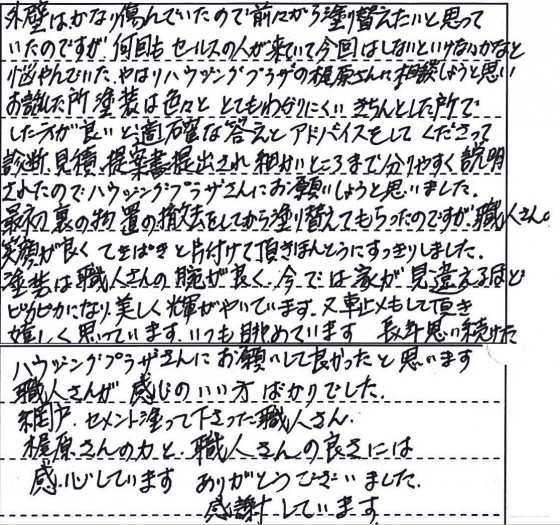 外壁はかなり傷んでいたので前々から塗り替えたいと思って
いたのですが 何回もセールスの人が来ていて今回はしないといけないかなと
悩やんでいた、やはりハウジングプラザの梶原さんに相談しようと思い
お訪ねした所 塗装は色々と とてもわかりにくい きちんとした所で
した方が良いと適確な答えとアドバイスをして くださって
診断、見積、提案書提出され 細かいところまで分りやすく説明
されたのでハウジングプラザさんにお願いしようと思いました。
最初 裏の物置の撤去をしてから塗り替えてもらったのですが、職人さん。
笑顔が良く てきぱきと片付けて頂きほんとうにすっきりしました。
塗装は職人さんの腕が良く、今では家が見違えるほど
ピカピカになり 美しく輝がやいています。又車止メもして頂き
嬉しく思っています。いつも眺めています 長年思い続けた
ハウジングプラザさんに お願いして良かったと思います
職人さんが 感じのいい方ばかりでした。
網戸、セメント塗って下さった職人さん、
梶原さんの力と 職人さんの良さには
感心しています ありがとうございました。
感謝しています。